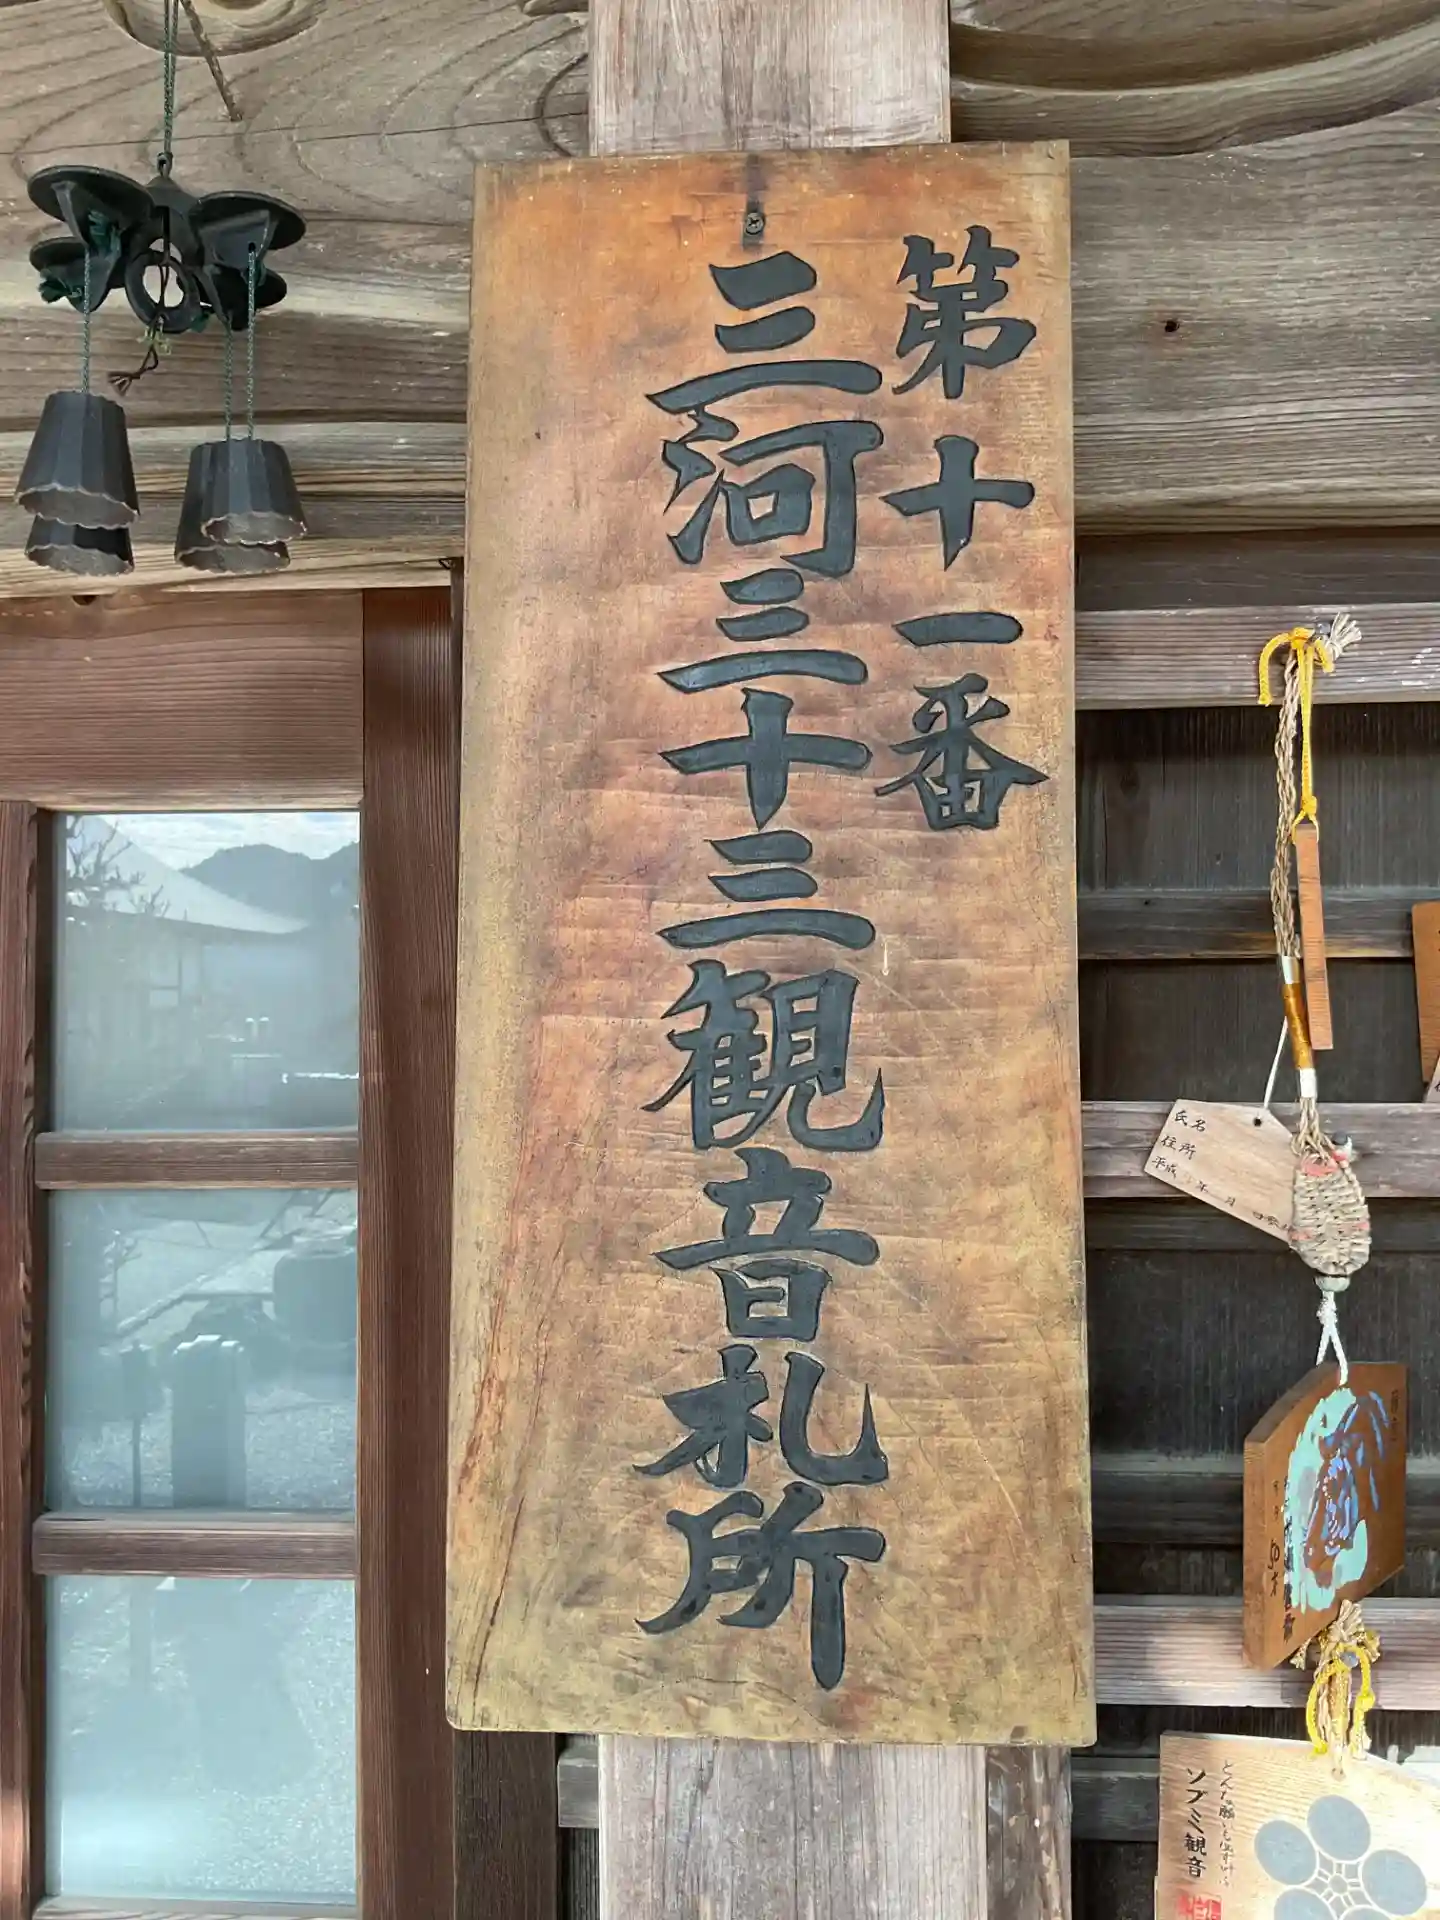 第十一番
三河三十三観音札所
氏名
住所
平成 年 月 日
どんな願いも
ソブミ観音